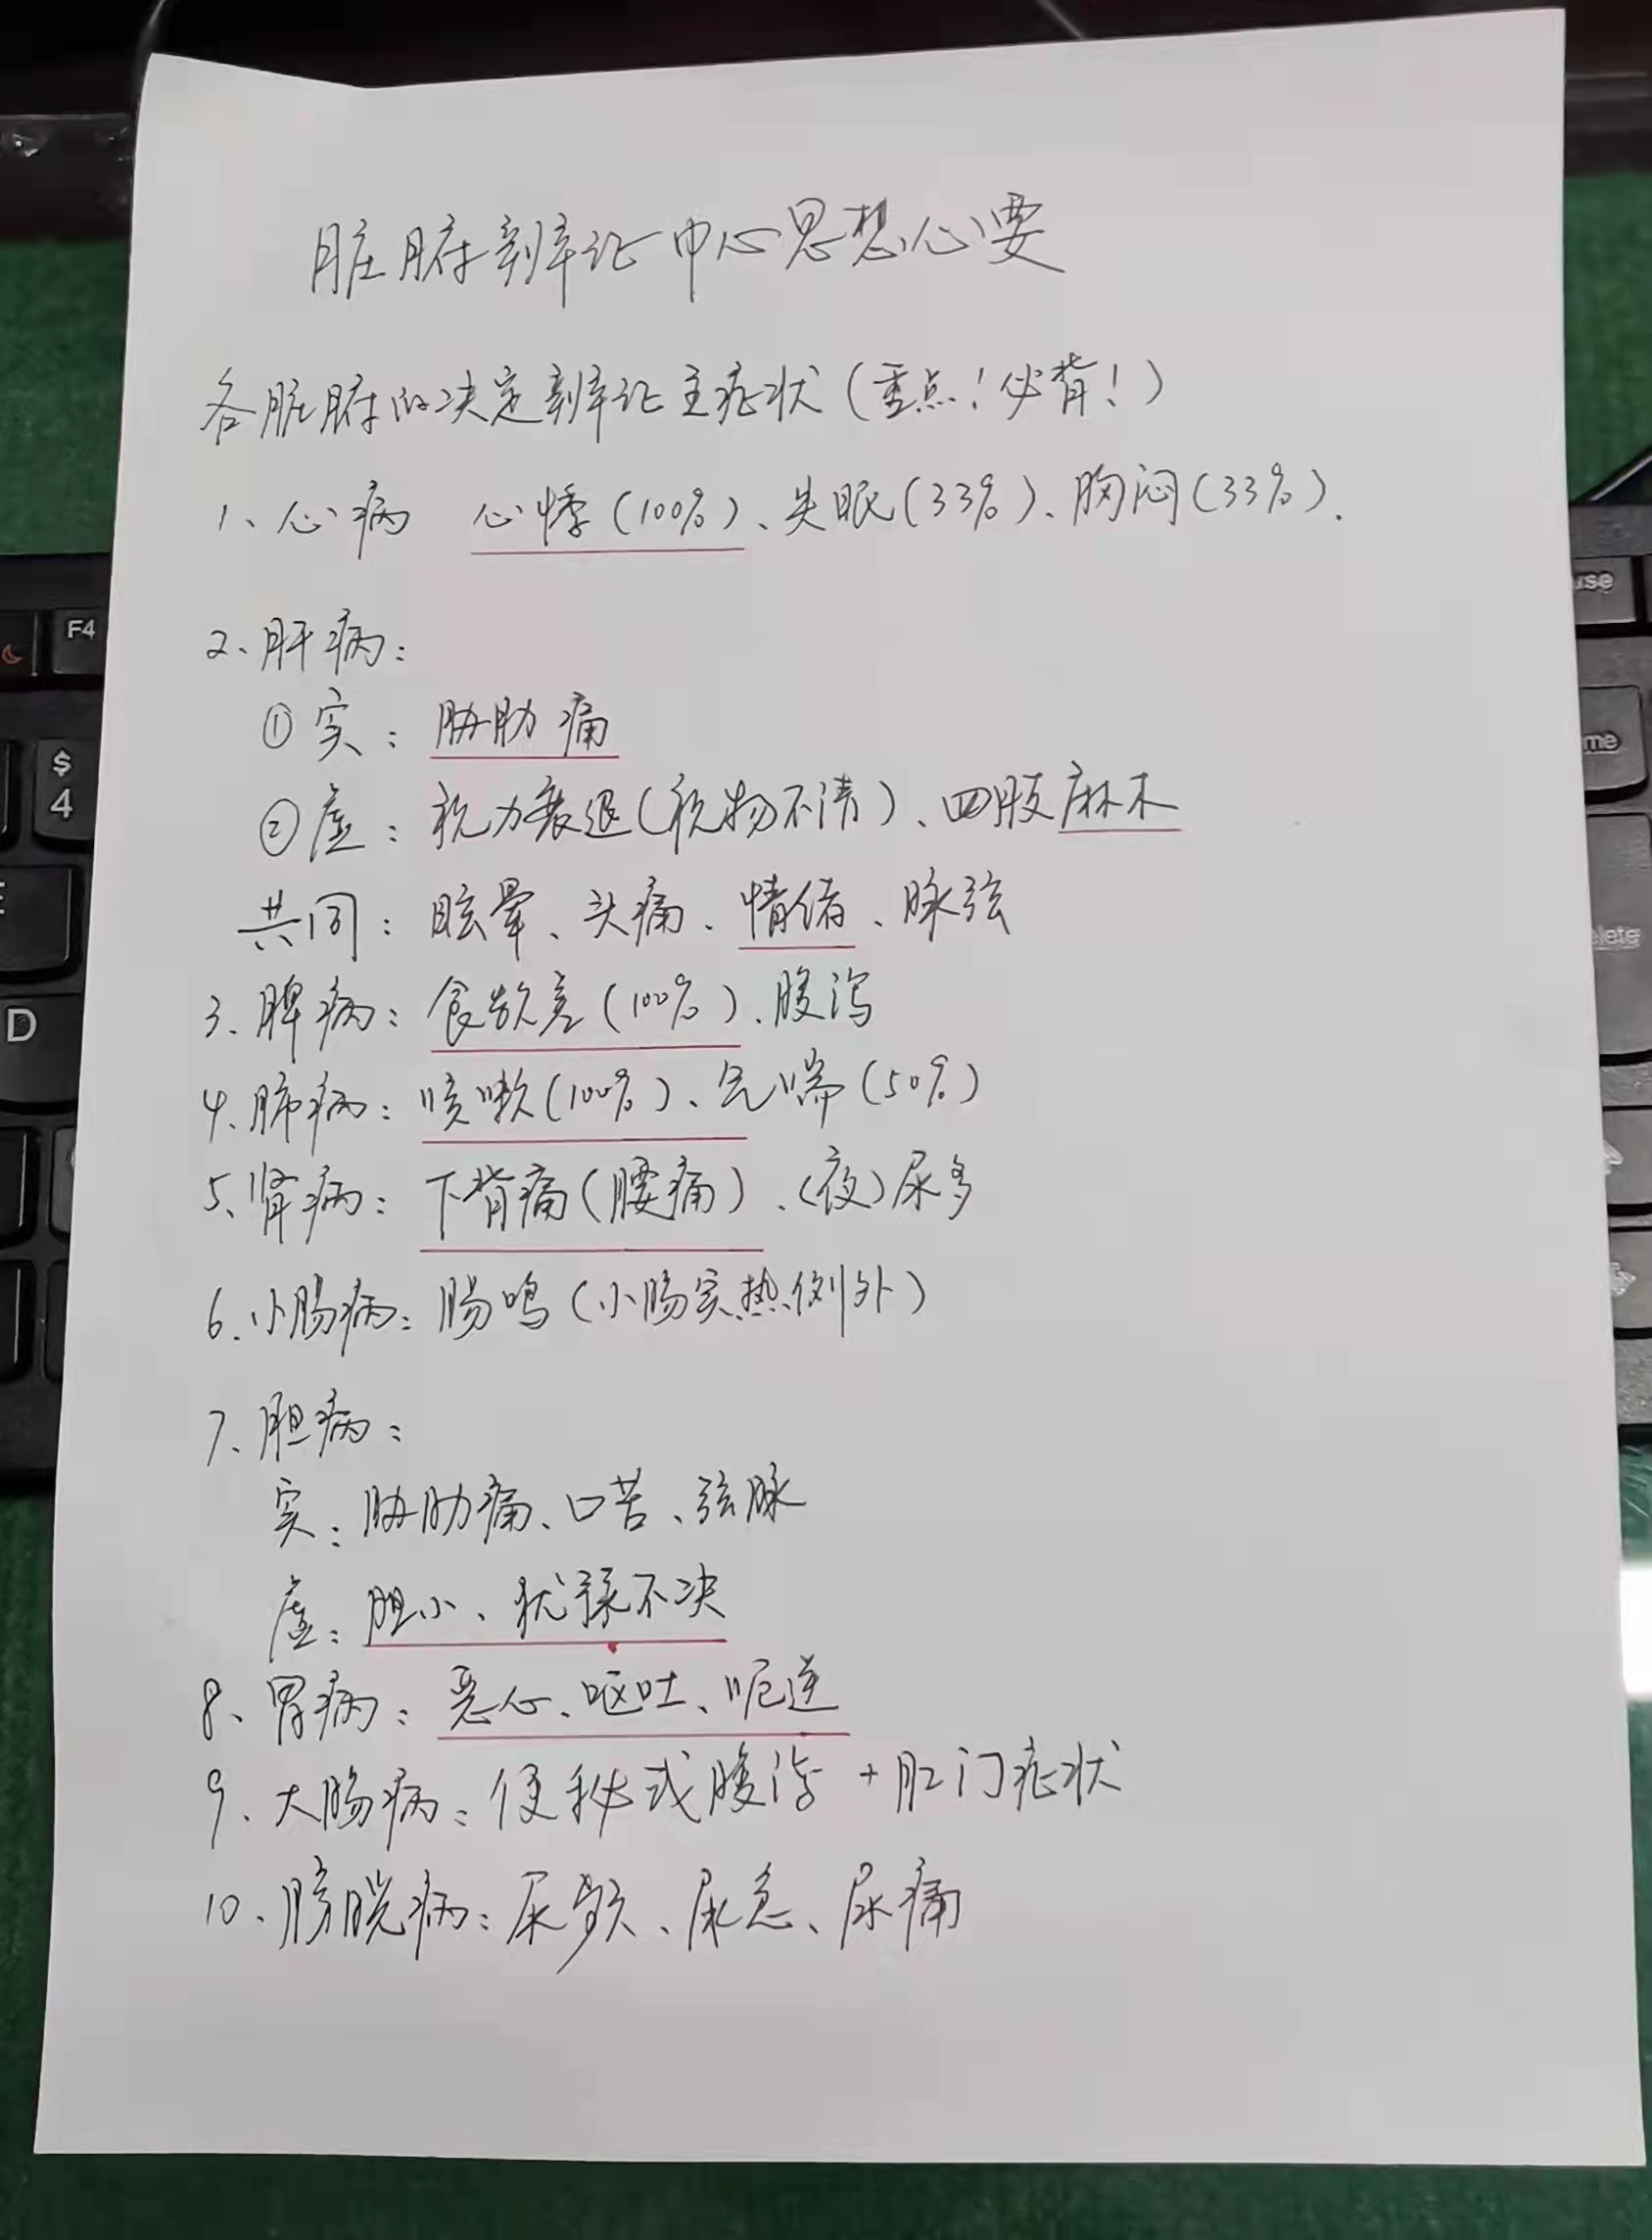 脏腑辨证中心思想心要
各脏腑的决定辨证主症状(重点!必背!)
1、心病 心悸(100%)、失眠(33%)、胸闷(33%).
2、肝病:
①实:胁肋痛
②虚:视力衰退(视物不清)、四肢麻木
共同:眩晕、头痛、情绪、脉弦
3、脾病:食欲差(100%)、腹泻
4、肺病:咳嗽(100%)、气喘(50%)
5、肾病:下背痛(腰痛)、(夜)尿多
6、小肠病:肠鸣(小肠实热例外)
7、胆病:
实:胁肋痛、口苦、弦脉
虚:胆小、犹豫不决
8、胃病:恶心、呕吐、呃逆
9、大肠病:便秘或腹泻+肛门症状
10、膀胱病:尿频、尿急、尿痛
F4
$
4
D
use
me
elete